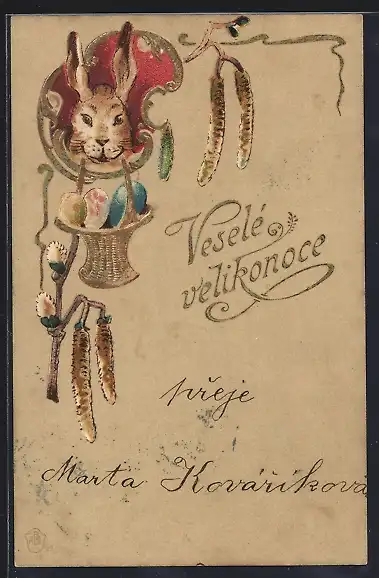 Veselé
velikonoce
přeje
Marta Kováříková